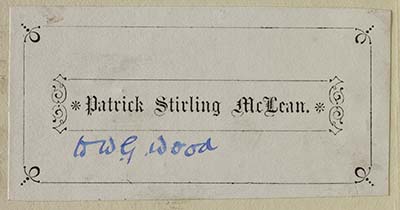 * Patrick Stirling McLean. *
H W G Wood